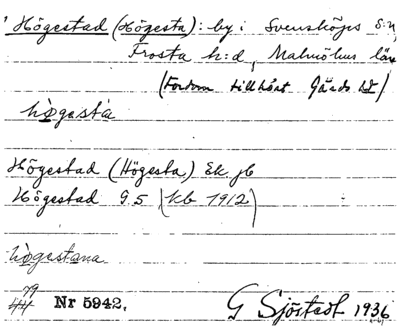 Högestad (Högesta): by i Svensköps s:n,
Frosta h:d, Malmöhus län
(Fordom tillhört Gärds hd)
högesta
Högestad (Högesta) Ek. jb
Högestad GS (kb 1912)
högestana
79
44 Nr 5942. G Sjöstedt 1936